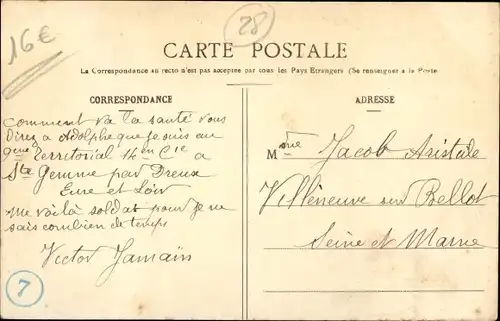 16€
28
CARTE POSTALE
La Correspondance au recto n'est pas acceptée par tous les Pays Etrangers (Se renseigner à la Poste
CORRESPONDANCE
Comment va la santé vous
Direz a Adolphe que je suis au
9me Territorial 14en Cie a
Ste Gemme par Dreux
Eure et Loir
me voilà soldat pour je ne
sais combien de temps
Victor Jamain
7
ADRESSE
Mme Jacob Aristide
Villeneuve sur Bellot
Seine et Marne